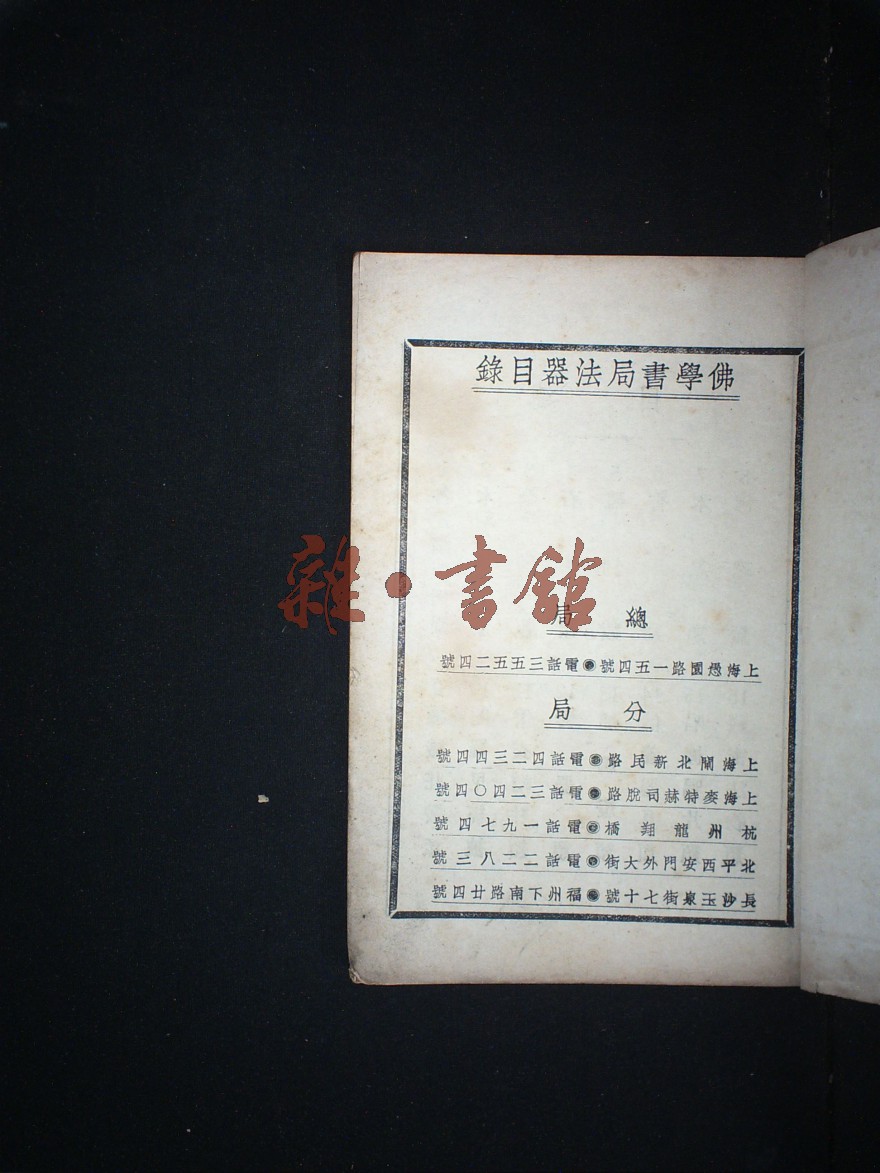 佛學書局法器目錄
雜·書館
總局
上海愚園路一五四號●電話三五五二四號
分局
上海閘北新民路●電話四二三四四號
上海麥特赫司脫路●電話三二四〇四號
杭州龍翔橋●電話一九七四號
北平西安門外大街●電話二二八三號
長沙玉泉街七十號●福州下南路廿四號